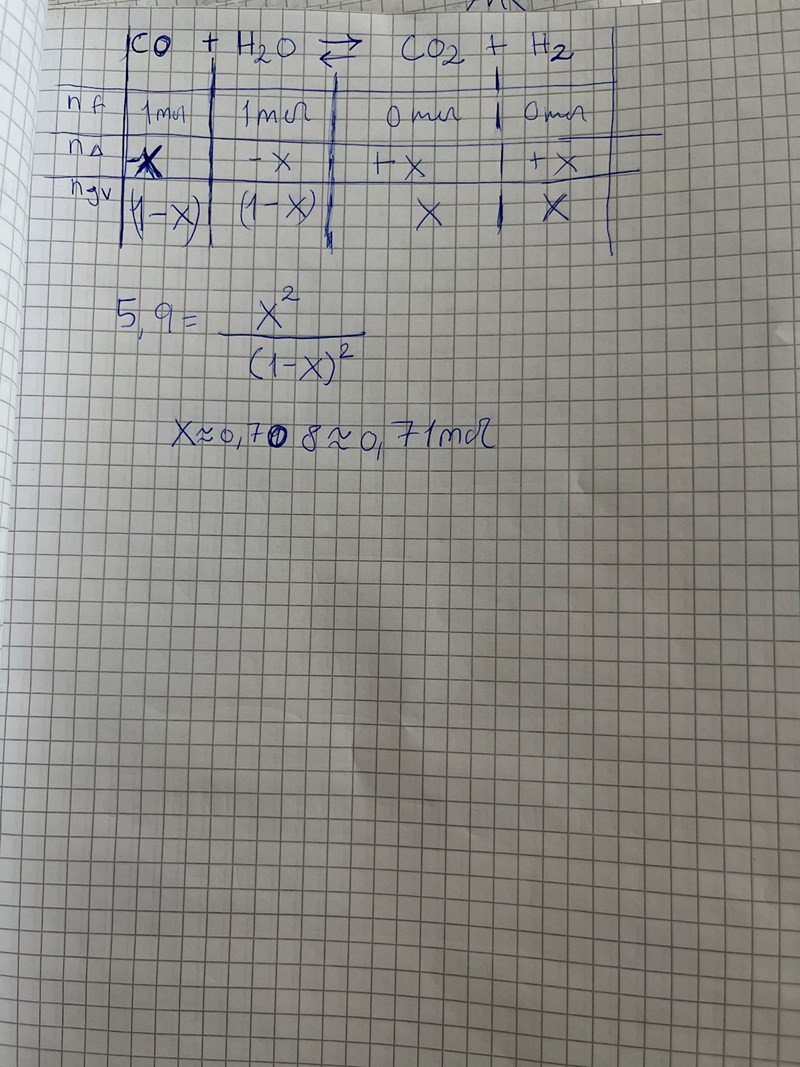 CO + H2O ⇄ CO2 + H2
nf 1mol 1mol 0mol 0mol
nΔ -x -x +x +x
ngv (1-x) (1-x) x x
5,9 = x² / (1-x)²
X≈0,708≈0,71mol